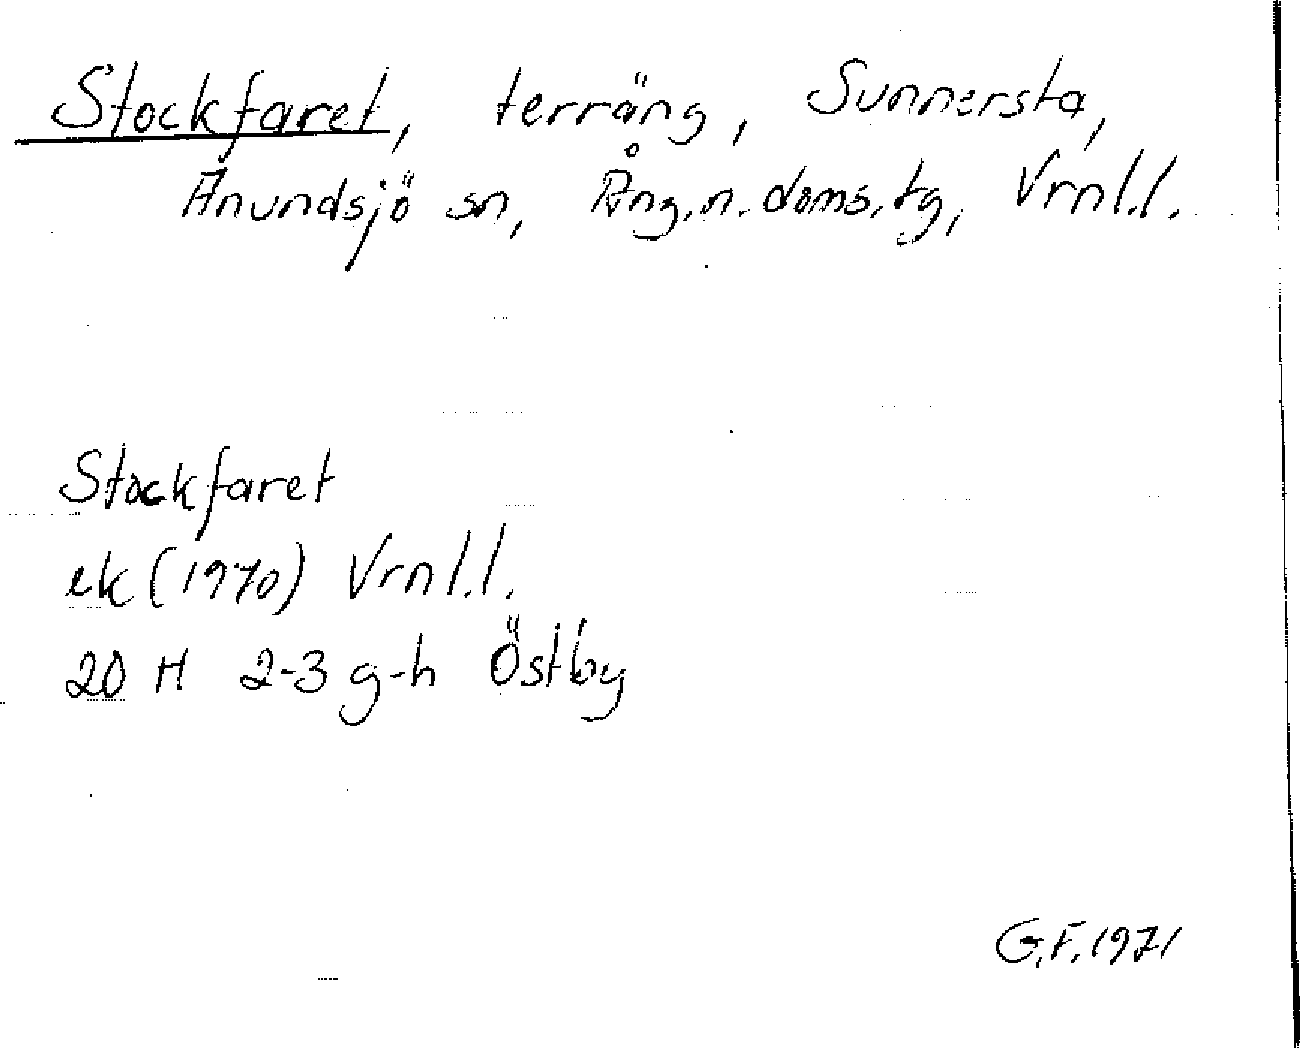 Stockfaret, terräng, Sunnersta,
Anundsjö sn, Ång.n.doms.tg, Vrnl.l.
Stockfaret
ek (1970) Vrnl.l.
20 H 2-3 g-h Östby
G.F. 1971